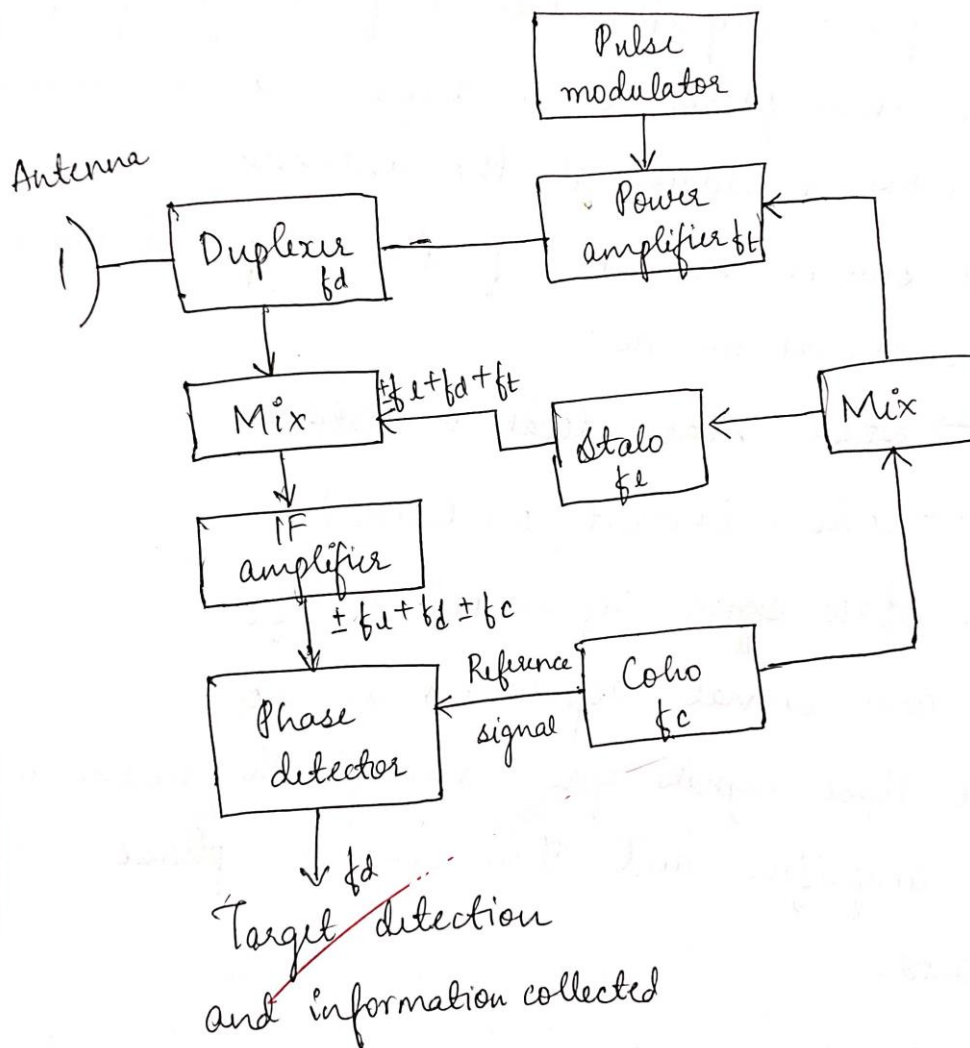 Pulse
modulator
Antenna
Power
amplifier ft
Duplexer
fd
Mix
±fl+fd+ft
Stalo
fl
Mix
IF
amplifier
±fl+fd±fc
Phase
detector
Reference
signal
Coho
fc
fd
Target detection
and information collected